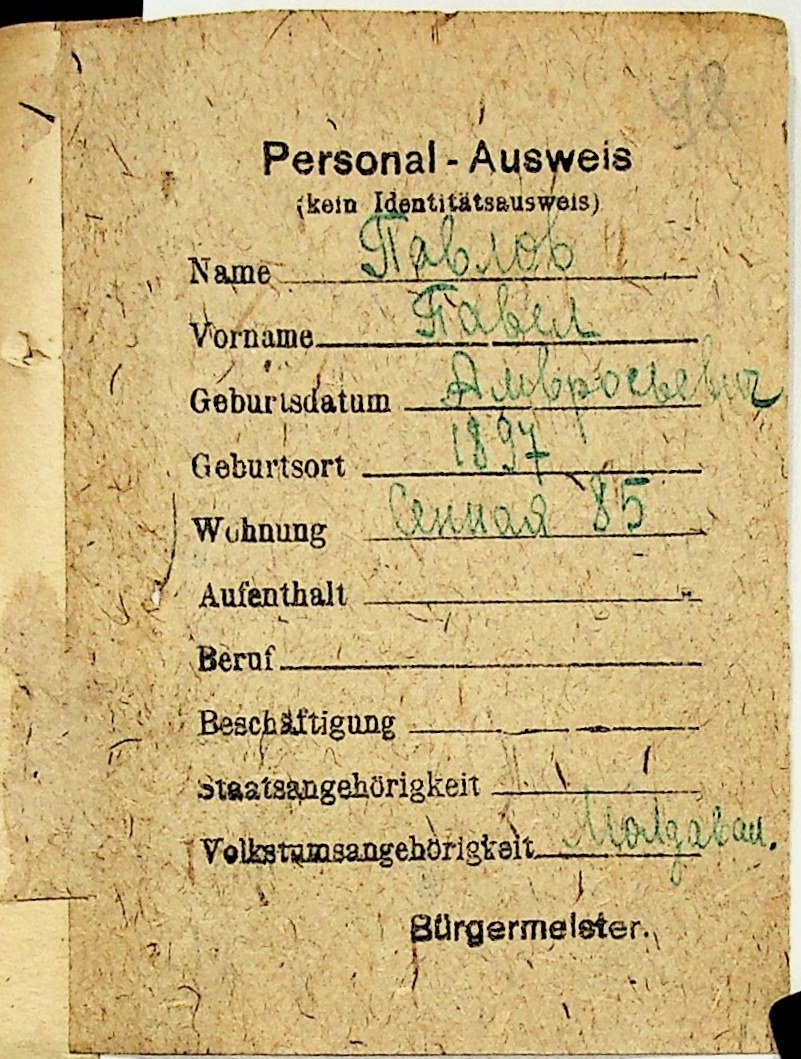 48
Personal - Ausweis
(kein Identitätsausweis)
Name Павлов
Vorname Павел
Geburtsdatum Амвросьевич
Geburtsort 1897
Wohnung Сенная 85
Aufenthalt
Beruf
Beschäftigung
Staatsangehörigkeit
Volkstumsangehörigkeit Молдаван.
Bürgermeister.